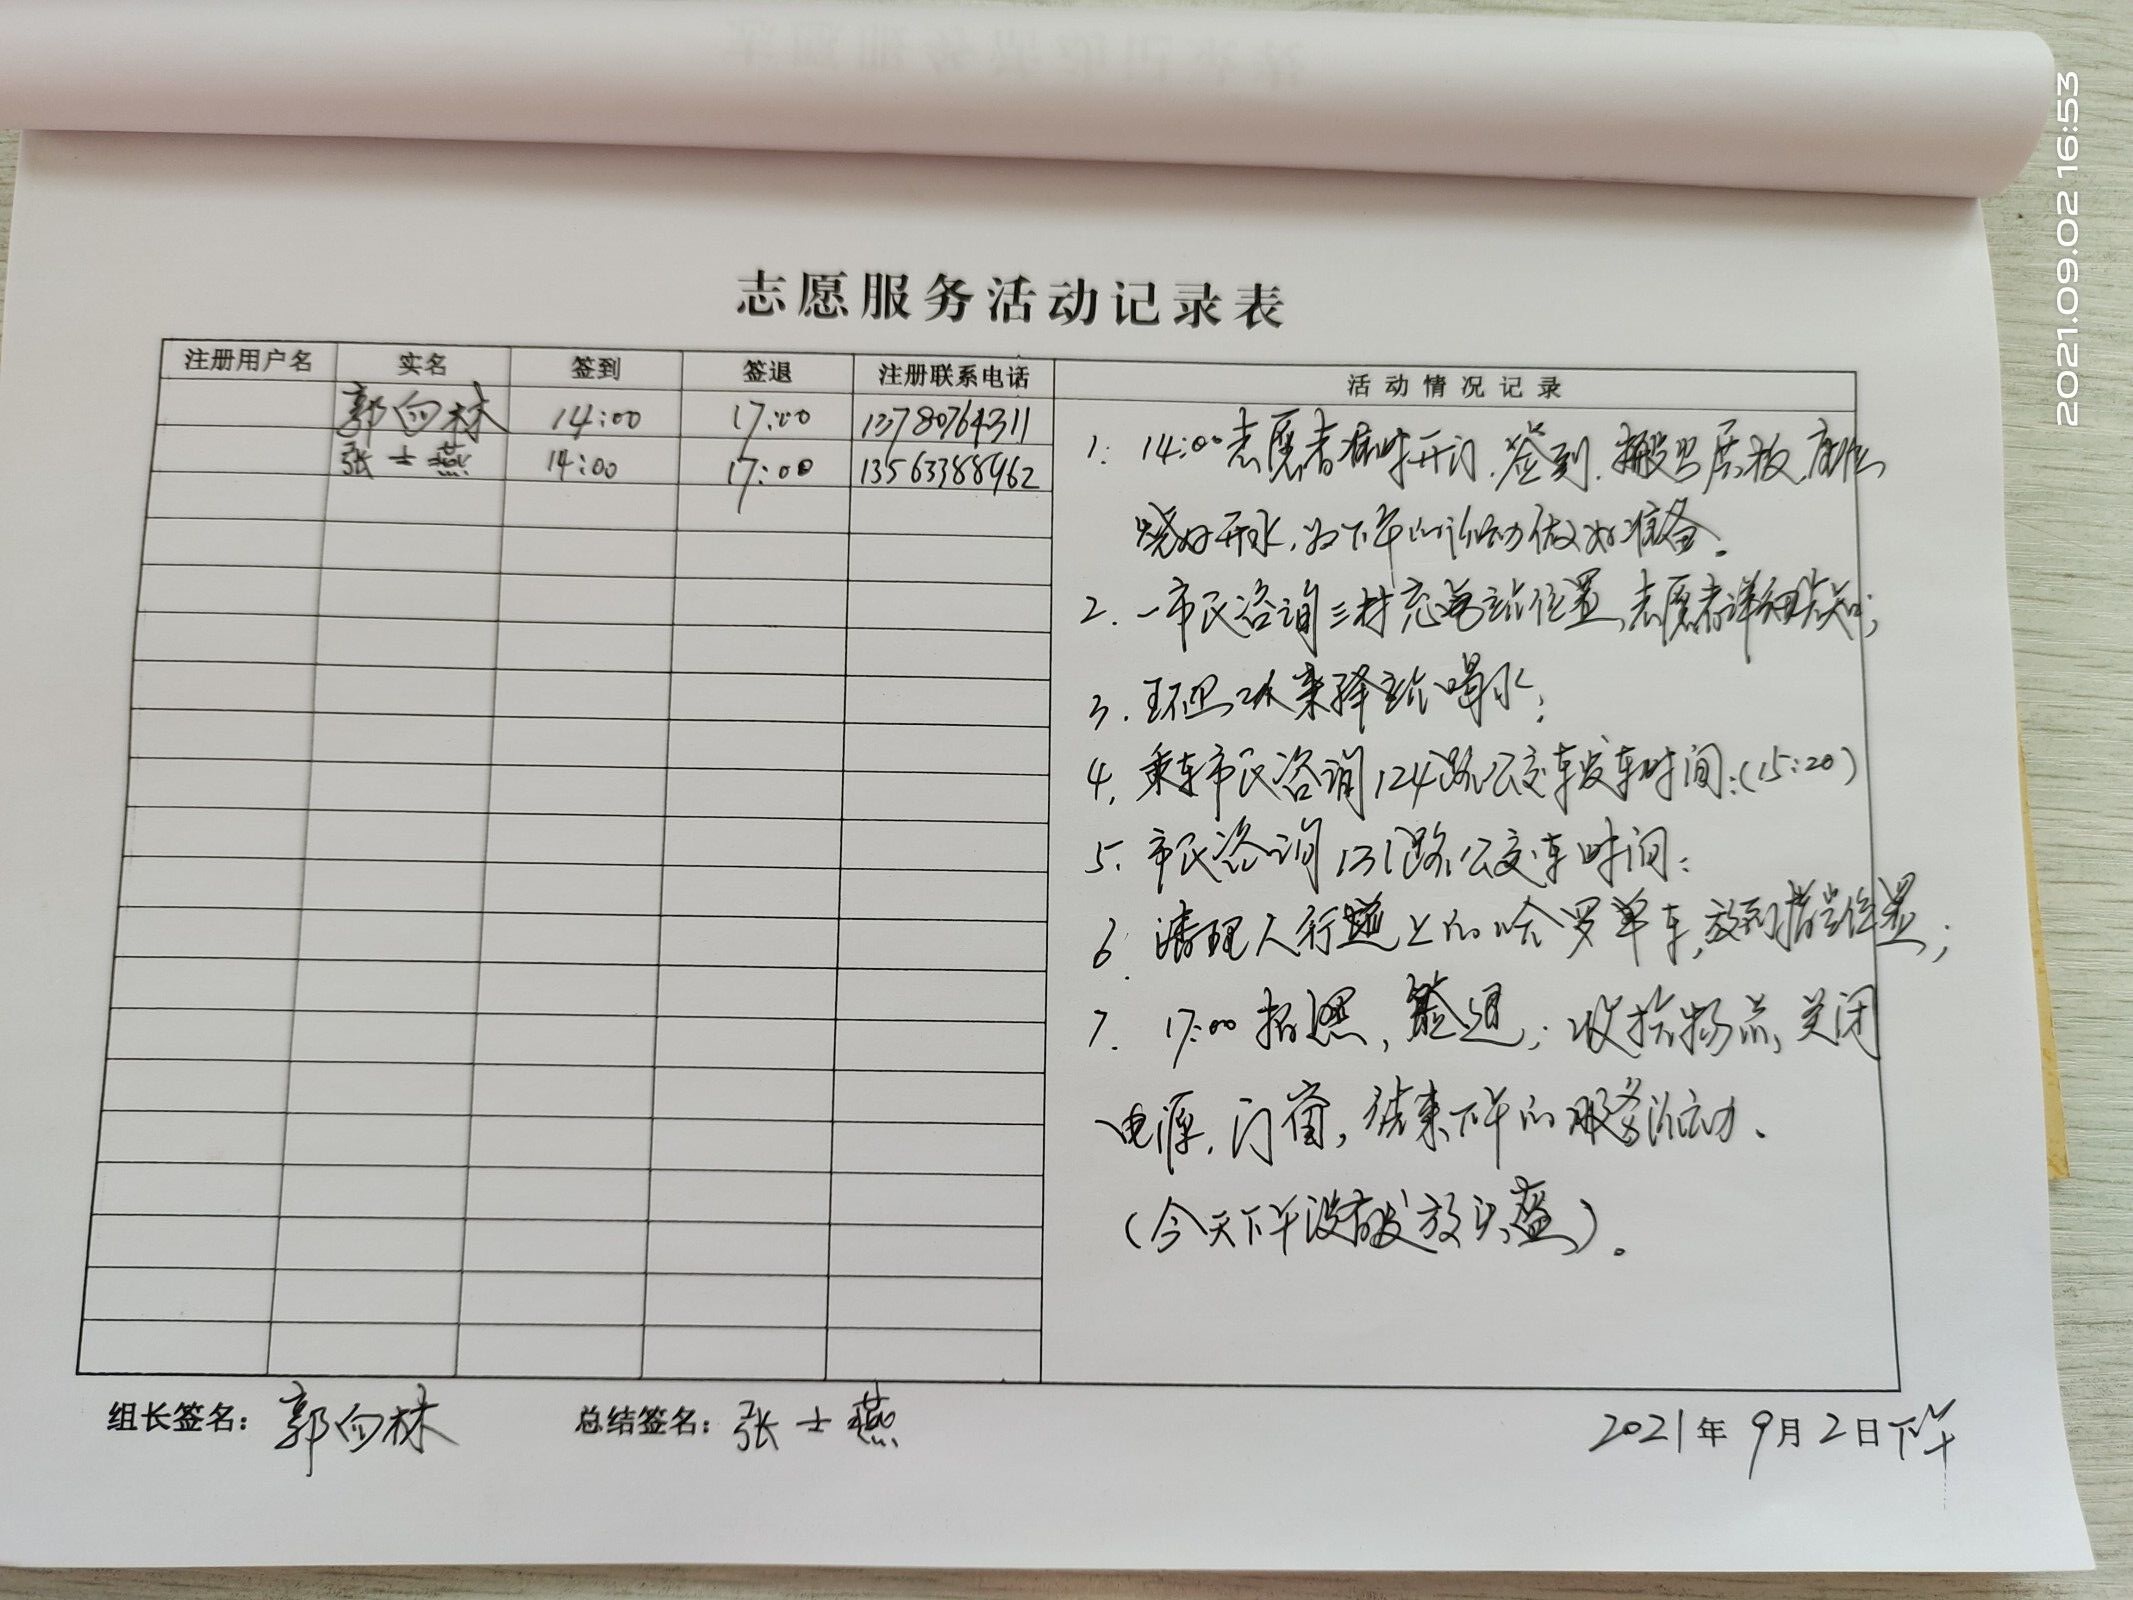 2021.09.02 16:53
志愿服务活动记录表
注册用户名 实名 签到 签退 注册联系电话 活动情况记录
郭向林 14:00 17:00 13780764311
张士燕 14:00 17:00 13563388962
1. 14:00志愿者准时开门.签到.搬出展板.座椅
烧好开水,为下午的活动做好准备。
2. 一市民咨询三村充电站位置,志愿者详细告知;
3. 环卫工人来驿站喝水;
4. 乘车市民咨询124路公交车发车时间:(15:20)
5. 市民咨询131路公交车时间:
6. 清理人行道上的哈罗单车,放到指定位置;
7. 17:00拍照,签退;收拾物品,关闭
电源,门窗,结束下午的服务活动.
(今天下午没有发放头盔)。
组长签名: 郭向林 总结签名: 张士燕 2021年9月2日下午